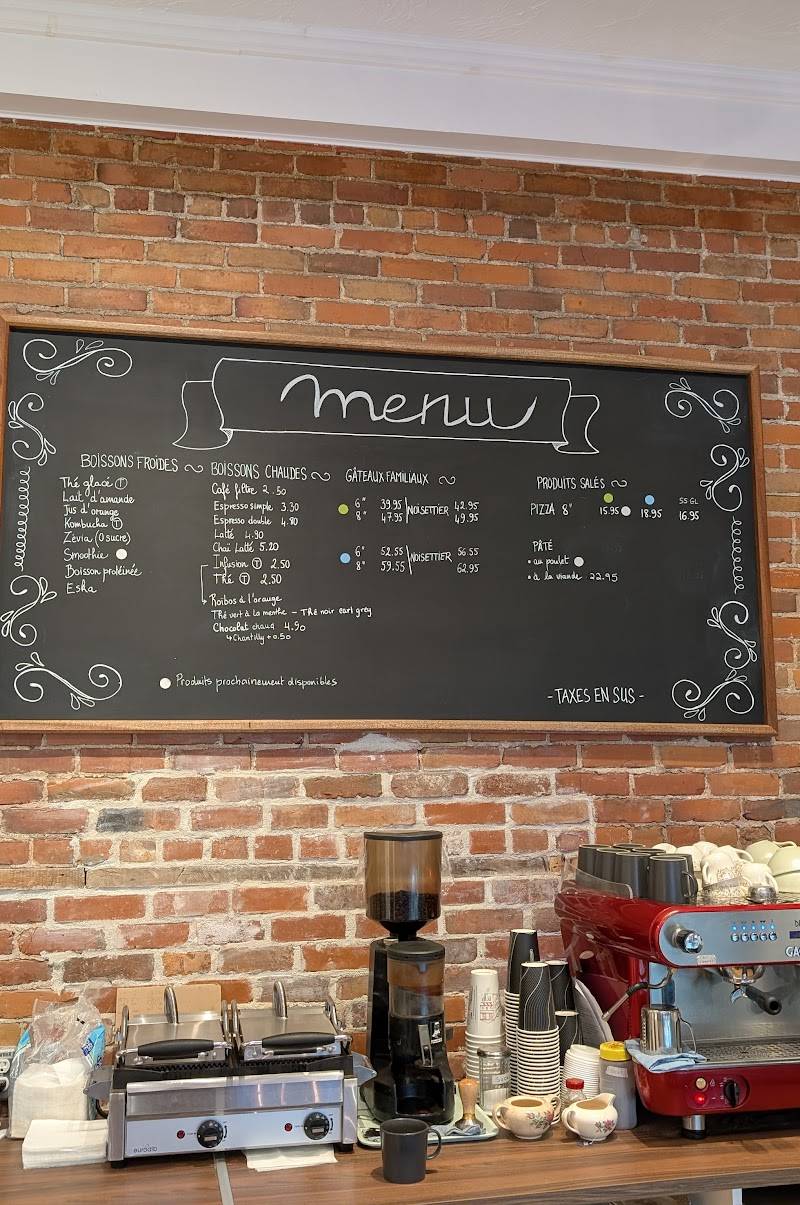 menu
BOISSONS FROIDES
Thé glacé Ⓣ
Lait d'amande
Jus d'orange
Kombucha Ⓣ
Zévia (0 sucre)
Smoothie
Boisson protéinée
Eska
BOISSONS CHAUDES
Café filtre 2.50
Espresso simple 3.30
Espresso double 4.80
Latté 4.90
Chaï Latté 5.20
Infusion Ⓣ 2.50
Thé Ⓣ 2.50
Roïbos à l'orange
Thé vert à la menthe - Thé noir earl grey
Chocolat chaud 4.90
Chantilly + 0.50
GÂTEAUX FAMILIAUX
6" 39.95 NOISETTIER 42.95
8" 47.95 49.95
6" 52.55 NOISETTIER 56.55
8" 59.55 62.95
PRODUITS SALÉS
SS GL
PIZZA 8" 15.95 18.95 16.95
PÂTÉ
• au poulet
• à la viande 22.95
Produits prochainement disponibles
- TAXES EN SUS -
eurodib